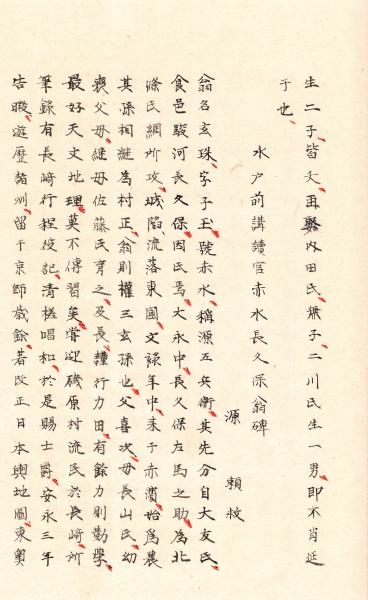 生二子皆夭再娶内田氏無子二川氏生一男即不肖延
于也
水戸前講讀官赤水長久保翁碑
源　頼救
翁名玄珠字子玉號赤水稱源五兵衛其先分自大友氏
食邑駿河長久保因氏焉大永中長久保左馬之助為北
條氏綱所攻城陷流落東國文禄年中来于赤濱始爲農
其孫相継為村正翁則權三玄孫也父喜次母長山氏幼
喪父母継母佐藤氏育之及長謹行力田有餘力則勤學
最好天文地理莫不傳習矣嘗迎磯原村流民於長﨑所
筆録有長﨑行程役記清槎唱和於是賜士爵安永三年
告暇遊歴諸州留于京師歳餘著改正日本輿地圖東奥